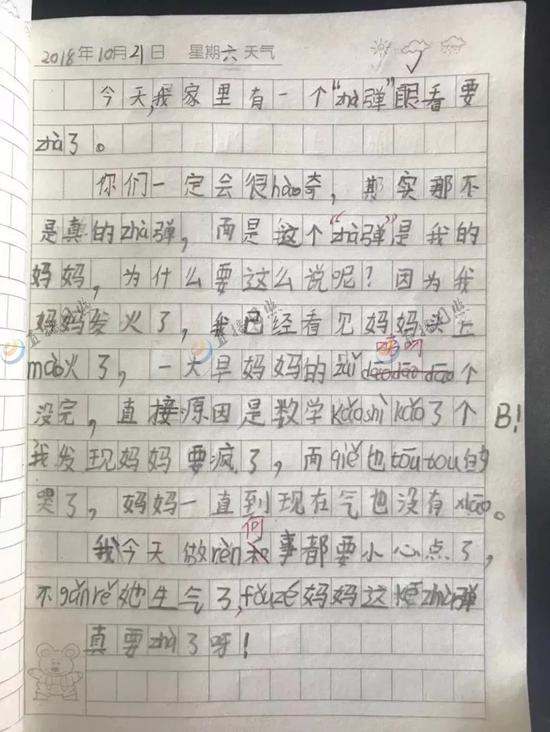 2018年10月21日 星期六 天气
今天,我家里有一个"zhà弹"眼看要
zhà了。
你们一定会很hào奇，期实那不
是真的zhà弹，而是这个"zhà弹"是我的
妈妈，为什么要这么说呢？因为我
妈妈发火了，我已经看见妈妈头上
mào火了，一大早妈妈的zuǐ dāo dāo dāo个
唠叨
没完，直接原因是数学kǎoshì kǎo了个B!
我发现妈妈要疯了，而qiě也tōu tou的
哭了，妈妈一直到现在气也没有xiāo。
何
我今天做rèn和事都要小心点了，
不gǎn rě她生气了,fǒuzé妈妈这 zhà弹
真要zhà了呀!